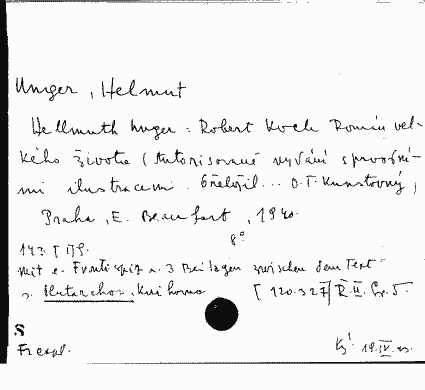 Unger, Helmut
Hellmuth Unger: Robert Koch Román vel-
kého života (Autorisované vydání s původní-
mi ilustracemi. Přeložil... O.F. Kunstovný)
Praha, E. Beaufort, 1940.
8°
143 [1] S.
mit e. Frontispiz u. 3 Beilagen zwischen dem Text
Plutarchos, Knihovna [120.327] R. II. Sv. 5.
S
Frespl. 19.IV.